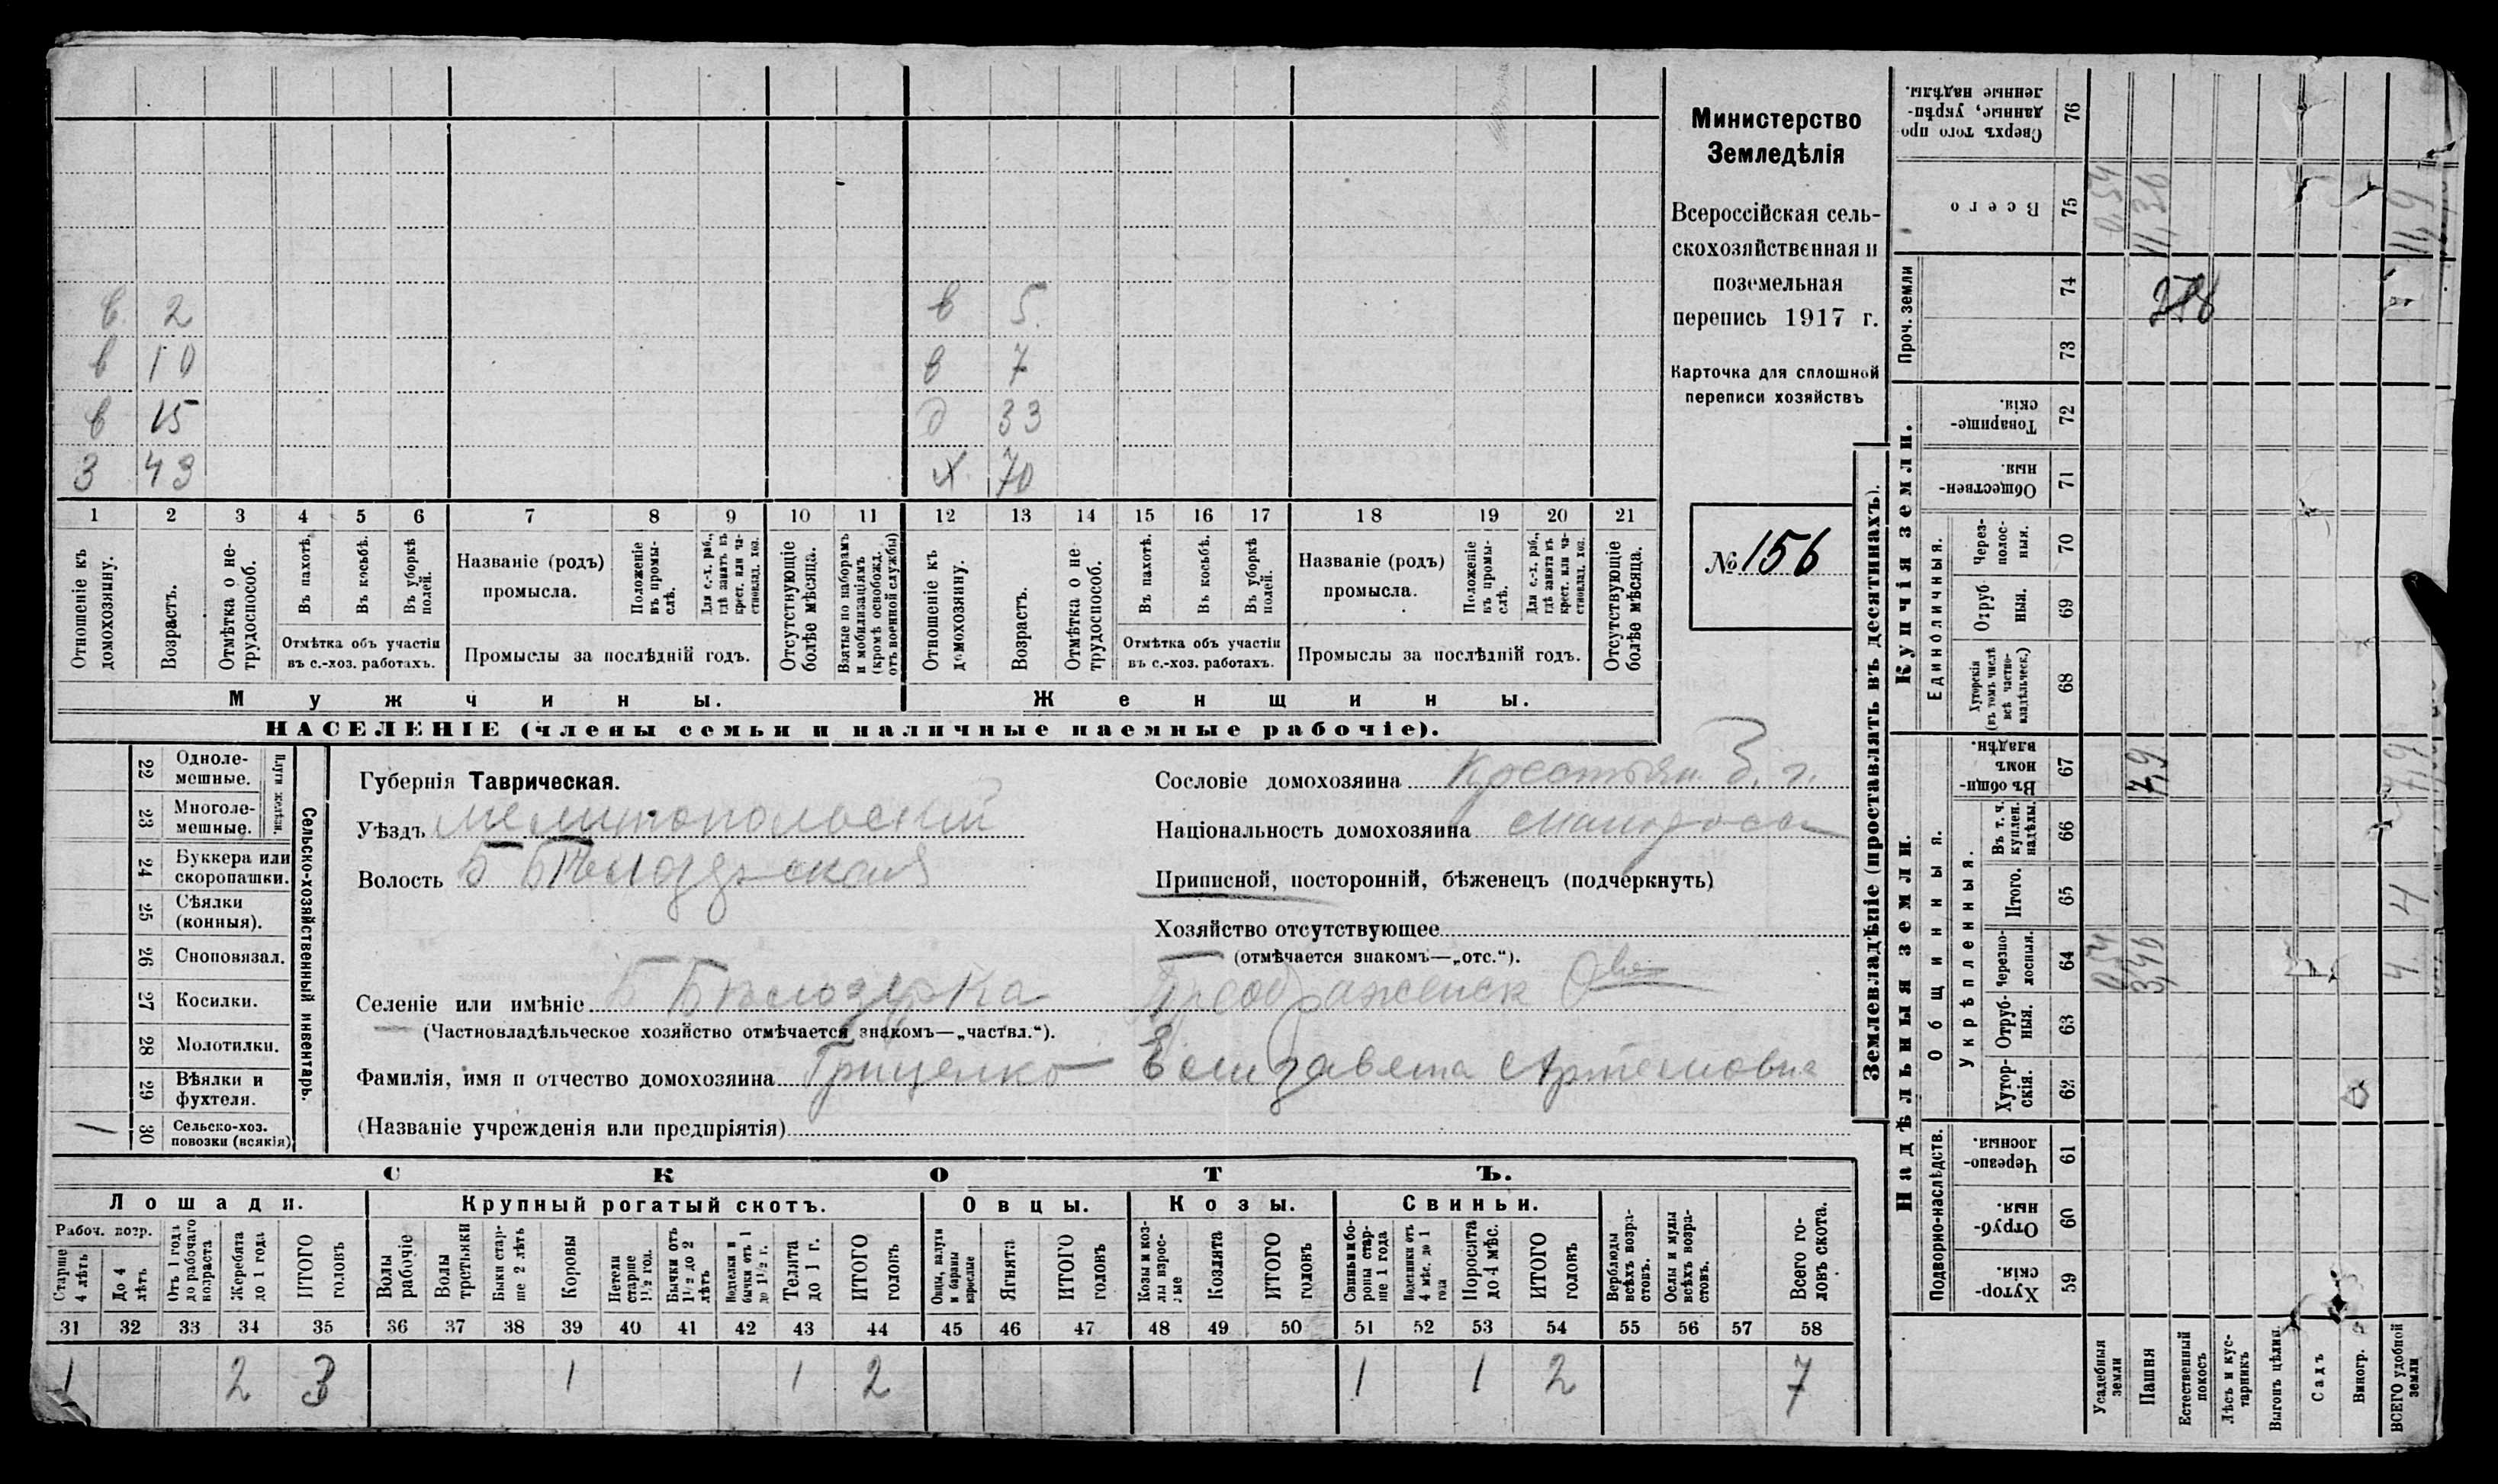 в 2 в 5
в 10 в 7
в 15 д 33
З 43 Х 70
1 2 3 4 5 6 7 8 9 10 11 12 13 14 15 16 17 18 19 20 21
Отношеніе къ домохозяину.
Возрастъ.
Отмѣтка о нетрудоспособ.
Въ пахотѣ.
Въ косьбѣ.
Въ уборкѣ полей.
Отмѣтка объ участіи
въ с.-хоз. работахъ.
Названіе (родъ)
промысла.
Положеніе въ промыслѣ.
Для с.-х. раб., гдѣ занятъ въ крест. или частновлад. хоз.
Промыслы за послѣдній годъ.
Отсутствующіе болѣе мѣсяца.
Взятые по наборамъ и мобилизаціямъ (кромѣ освобожд. отъ военной службы)
Отношеніе къ домохозяину.
Возрастъ.
Отмѣтка о нетрудоспособ.
Въ пахотѣ.
Въ косьбѣ.
Въ уборкѣ полей.
Отмѣтка объ участіи
въ с.-хоз. работахъ.
Названіе (родъ)
промысла.
Положеніе въ промыслѣ.
Для с.-х. раб., гдѣ занята въ крест. или частновлад. хоз.
Промыслы за послѣдній годъ.
Отсутствующіе болѣе мѣсяца.
Мужчины. Женщины.
НАСЕЛЕНІЕ (члены семьи и наличные наемные рабочіе).
Министерство
Земледѣлія
Всероссійская сель-
скохозяйственная и
поземельная
перепись 1917 г.
Карточка для сплошной
переписи хозяйствъ
№ 156
22 Одноле-
мешные.
23 Многоле-
мешные.
Плуги желѣзн.
24 Буккера или
скоропашки.
25 Сѣялки
(конныя).
26 Сноповязал.
27 Косилки.
28 Молотилки.
29 Вѣялки и
фухтеля.
1 30 Сельско-хоз.
повозки (всякія)
Сельско-хозяйственный инвентарь.
Губернія Таврическая.
Уѣздъ Мелитопольскій
Волость Б Бѣлозерская
Селеніе или имѣніе Б Бѣлозерка Преображенск Ове
(Частновладѣльческое хозяйство отмѣчается знакомъ—„частвл.“).
Фамилія, имя и отчество домохозяина Гриценко Елизавета Артемовна
(Названіе учрежденія или предпріятія)
Сословіе домохозяина крестьян. З. г.
Національность домохозяина малоросс
Приписной, посторонній, бѣженецъ (подчеркнуть)
Хозяйство отсутствующее
(отмѣчается знакомъ—„отс.“).
СКОТЪ.
Лошади. Крупный рогатый скотъ. Овцы. Козы. Свиньи.
Рабоч. возр.
Старше 4 лѣтъ
До 4 лѣтъ
Отъ 1 года до рабочаго возраста
Жеребята до 1 года
ИТОГО головъ
Волы рабочіе
Волы третьяки
Быки старше 2 лѣтъ
Коровы
Нетели старше 1½ год.
Бычки отъ 1½ до 2 лѣтъ
Телки и бычки отъ 1 до 1½ г.
Телята до 1 г.
ИТОГО головъ
Овцы, валухи и бараны взрослые
Ягнята
ИТОГО головъ
Козы и козлы взрослые
Козлята
ИТОГО головъ
Свиньи и бороны старше 1 года
Подсвинки отъ 4 мѣс. до 1 года
Поросята до 4 мѣс.
ИТОГО головъ
Верблюды всѣхъ возрастовъ.
Ослы и мулы всѣхъ возрастовъ.
Всего головъ скота.
31 32 33 34 35 36 37 38 39 40 41 42 43 44 45 46 47 48 49 50 51 52 53 54 55 56 57 58
1 2 3 1 1 2 1 1 2 7
Землевладѣніе (проставлять въ десятинахъ).
Надѣльныя земли. Купчія земли. Проч. земли
Подворно-наслѣдств. Общинныя. Укрѣпленныя. Единоличныя.
59 Хуторскія.
60 Отрубныя.
61 Черезполосныя.
62 Хуторскія.
63 Отрубныя.
64 Черезполосныя.
65 Итого.
66 Въ т. ч. куплен. надѣлы.
67 Въ общинномъ владѣн.
68 Хуторскія (въ томъ числѣ всѣ частновладѣльческ.)
69 Отрубныя.
70 Черезполосныя.
71 Общественныя.
72 Товарищескія.
73
74
75 Всего
76 Сверхъ того проданные, укрѣпленные надѣлы.
Усадебныя земли 0,54 0,54
Пашня 3,46 7,9 11,36
Естественный покосъ
Лѣсъ и кустарникъ
Выгонъ цѣлин.
Садъ
Виногр.
ВСЕГО удобной земли 4 4 7,9 11,9